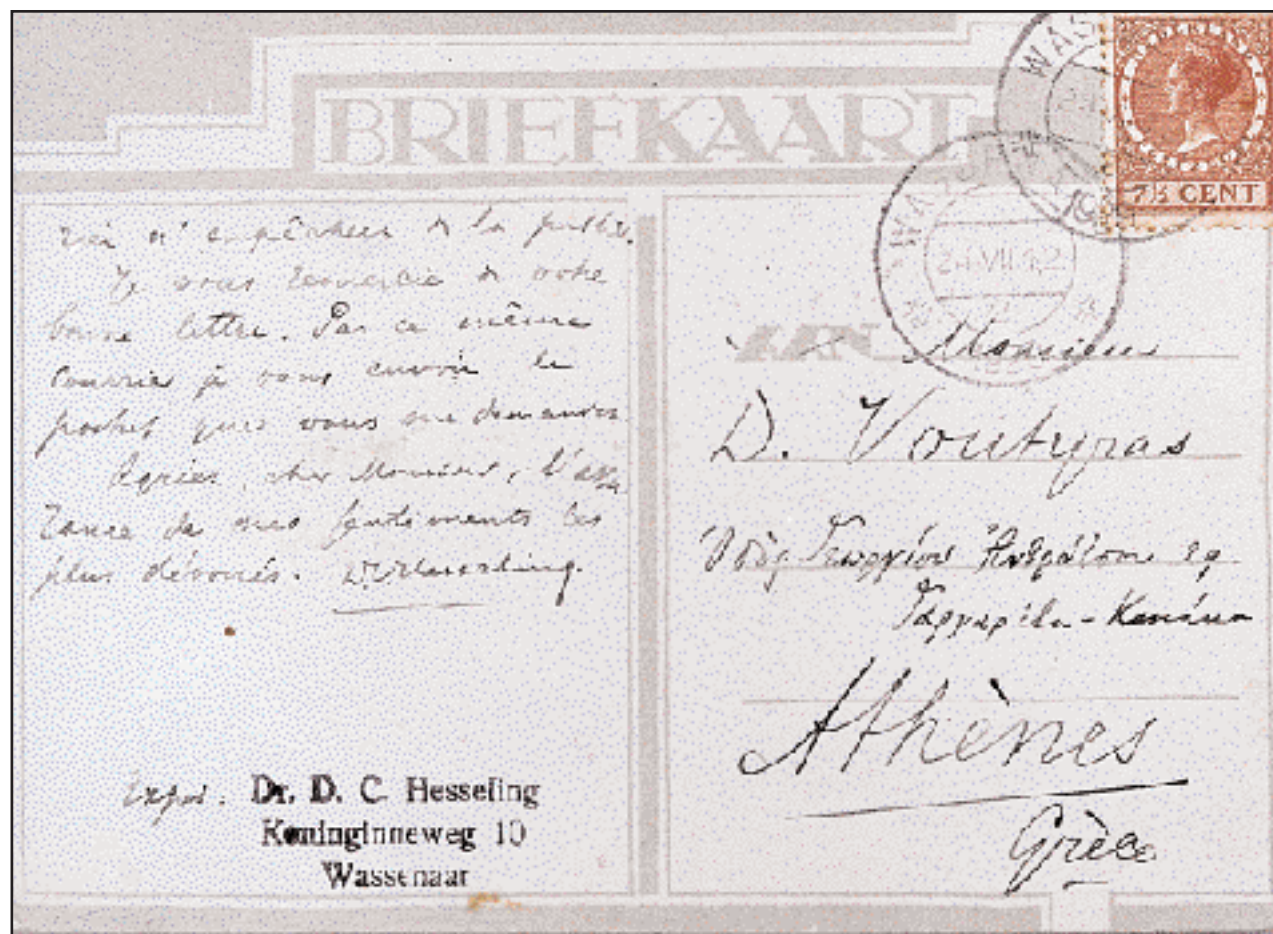 BRIEFKAART
7½ CENT
n'empêcher de la publier.
Je vous remercie de votre
bonne lettre. Par ce même
courrier je vous envoie le
que vous me demandez
Agréez, cher Monsieur, l'assu
rance de mes sentiments les
plus dévoués. D.C. Hesseling.
Expéd. Dr. D. C. Hesseling
Koninginneweg 10
Wassenaar
AAN Monsieur
D. Voutyras
Ὁδὸς Γεωργίου
Γαργαρέτα - Κουκάκι
Athènes
Grèce